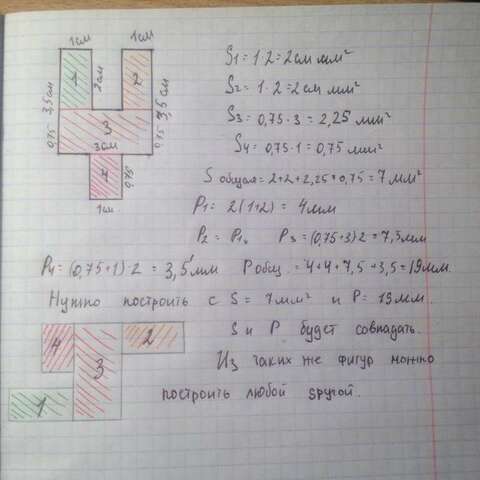 1см 1см
3,5см 1 2см 2 3,5см
0,75 3 0,75
3см
4 0,75
1см
S1 = 1·2 = 2см мм²
S2 = 1·2 = 2см мм²
S3 = 0,75·3 = 2,25 мм²
S4 = 0,75·1 = 0,75 мм²
S общая = 2+2+2,25+0,75 = 7мм²
P1 = 2(1+2) = 4мм
P2 = P1, P3 = (0,75+3)2 = 7,5мм
P4 = (0,75+1)·2 = 3,5мм P общ. = 4+4+7,5+3,5 = 19мм.
Нужно построить с S = 7мм² и P = 19мм.
S и P будет совпадать.
Из таких же фигур можно
построить любой другой.
4 3 2
1